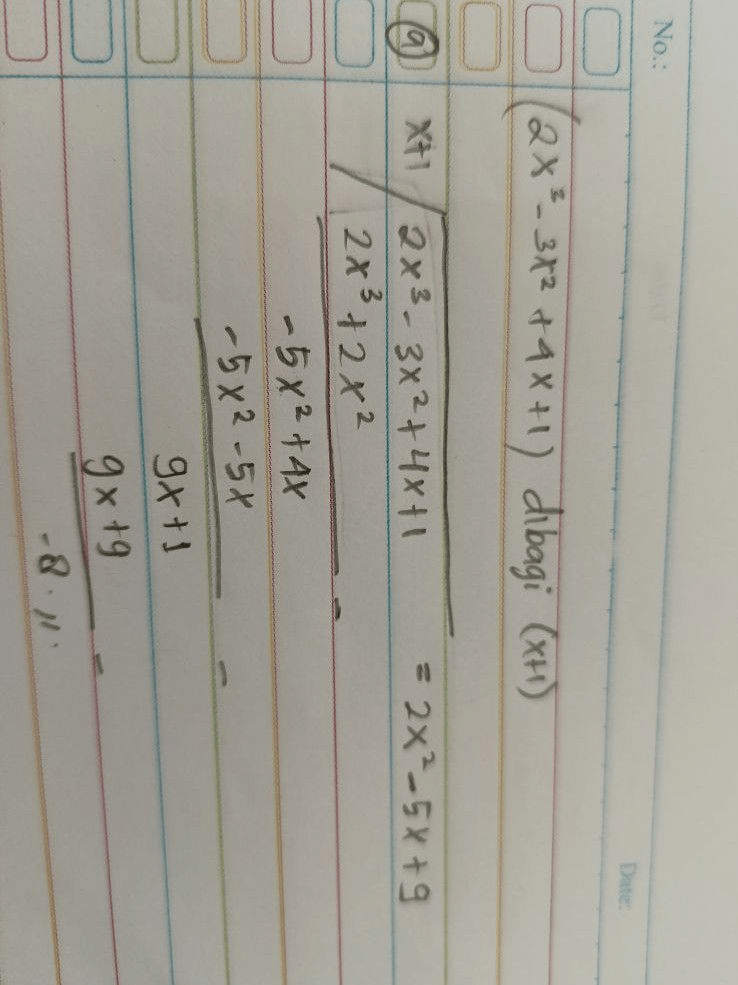 No.:
Date:
(2x³ - 3x² + 4x + 1) dibagi (x+1)
a) x+1 / 2x³ - 3x² + 4x + 1 = 2x² - 5x + 9
2x³ + 2x² -
-5x² + 4x
-5x² - 5x -
9x + 1
9x + 9 -
-8. //.